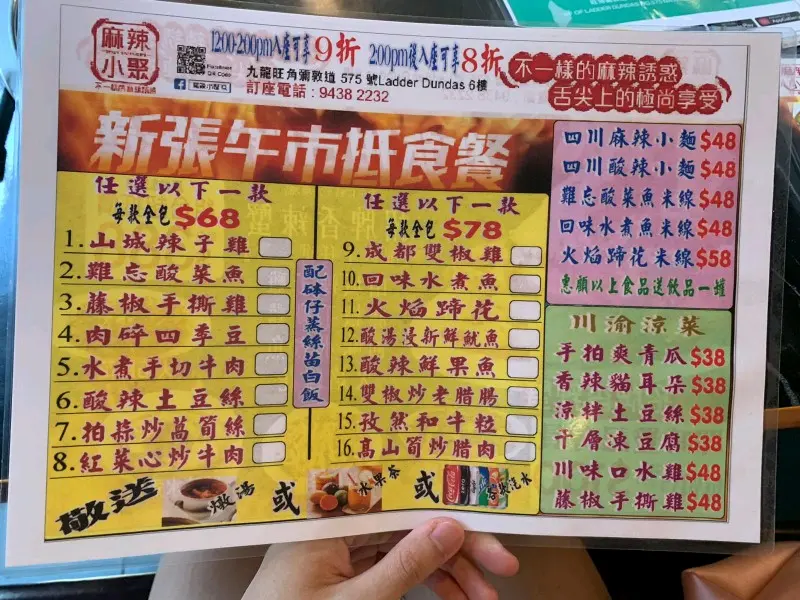 麻辣
小聚
不一樣的麻辣誘惑
1200-200pm入座可享9折 200pm後入座可享8折
九龍旺角彌敦道 575 號Ladder Dundas 6樓
訂座電話：9438 2232
麻辣小聚
不一樣的麻辣誘惑
舌尖上的極尚享受
新張午市抵食餐
任選以下一款
每款全包$68
1.山城辣子雞
2.難忘酸菜魚
3.藤椒手撕雞
4.肉碎四季豆
5.水煮手切牛肉
6.酸辣土豆絲
7.拍蒜炒萵筍絲
8.紅菜心炒牛肉
配砵仔蒸絲苗白飯
任選以下一款
每款全包$78
9.成都雙椒雞
10.回味水煮魚
11.火焰蹄花
12.酸湯浸新鮮魷魚
13.酸辣鮮果魚
14.雙椒炒老腊腸
15.孜然和牛粒
16.高山筍炒腊肉
敬送 燉湯 或 水果茶 或 各款汽水
四川麻辣小麵$48
四川酸辣小麵$48
難忘酸菜魚米線$48
回味水煮魚米線$48
火焰蹄花米線$58
惠顧以上食品送飲品一罐
川渝涼菜
手拍爽青瓜$38
香辣貓耳朵$38
涼拌土豆絲$38
千層凍豆腐$38
川味口水雞$48
藤椒手撕雞$48